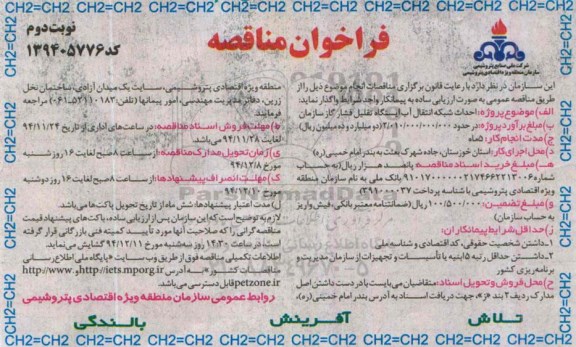 نوبت دوم
کد ۱۳۹۴۰۵۷۷۶
فراخوان مناقصه
شرکت ملی صنایع پتروشیمی
سازمان منطقه ویژه اقتصادی پتروشیمی
این سازمان در نظر دارد با رعایت قانون برگزاری مناقصات انجام موضوع ذیل را از
طریق مناقصه عمومی به صورت ارزیابی ساده به پیمانکار واجد شرایط واگذار نماید:
الف) موضوع پروژه: احداث شبکه انتقال آب ایستگاه تقلیل فشار گاز سازمان
ب) مبلغ برآورد پروژه: در حدود ۲/۰۹۰/۰۰۰/۰۰۰ (دو میلیارد و نود میلیون ریال)
ج) مدت انجام کار: ۵ماه
د) محل اجرای کار: استان خوزستان، جاده شهرک بعثت به بندر امام خمینی (ره)
هـ) مبلغ خرید اسناد مناقصه: پانصد هزار ریال (به حساب
شماره ۲۱۷۴۶۶۲۲۲۲۰۰۶ بانک ملی به نام سازمان منطقه
ویژه اقتصادی پتروشیمی با شناسه پرداخت
و) مبلغ تضمین: ۱۰۰/۵۰۰/۰۰۰ ریال (ضمانتنامه معتبر بانکی، فیش واریز
به حساب سازمان)
ز) حداقل شرایط پیمانکاران:
۱ـ داشتن شخصیت حقوقی، کد اقتصادی و شناسه ملی
۲ـ داشتن حداقل رتبه ۵ ابنیه یا تأسیسات و تجهیزات از سازمان مدیریت و
برنامه ریزی کشور
ح) محل فروش و تحویل اسناد: متقاضیان می‌بایست با در دست داشتن اصل
مدارک ردیف ۲ بند «ز» جهت دریافت اسناد به آدرس بندر امام خمینی (ره)،
منطقه ویژه اقتصادی پتروشیمی، سایت یک میدان آزادی، ساختمان نخل
زرین، دفاتر مدیریت مهندسی، امور پیمانها (تلفن: ۰۶۱ـ۵۲۱۱۰۱۸۲) مراجعه
فرمایند
ط) مهلت فروش اسناد مناقصه: در ساعت‌های اداری از تاریخ ۹۴/۱۱/۲۴
لغایت ۹۴/۱۱/۲۸ می‌باشد
ی) زمان تحویل مدارک مناقصه: از ساعت ۸ صبح لغایت ۱۶ روز شنبه
مورخ ۹۴/۱۲/۸
ک) مهلت انصراف پیشنهادها: از ساعت ۸صبح لغایت ۱۶ روز دوشنبه
مورخ ۹۴/۱۲/۱۰
ل) مدت اعتبار پیشنهادها: شش ماه از تاریخ تحویل پاکت‌ها می‌باشد.
لازم به توضیح است که این سازمان پس از ارزیابی ساده، پاکت‌های پیشنهاد قیمت
مناقصه گرانی را که صلاحیت آنها مورد تأیید کمیته فنی بازرگانی قرار گرفته
است، در ساعت ۱۴:۳۰ روز سه‌شنبه مورخ ۹۴/۱۲/۱۱ گشایش می‌نماید.
اطلاعات تکمیلی مناقصه فوق از طریق وب سایت «پایگاه ملی اطلاع رسانی
مناقصات کشور» به آدرس http://iets.mporg.ir و http://www.
petzone.ir قابل دسترسی می‌باشد.
روابط عمومی سازمان منطقه ویژه اقتصادی پتروشیمی
تلاش آفرینش بالندگی